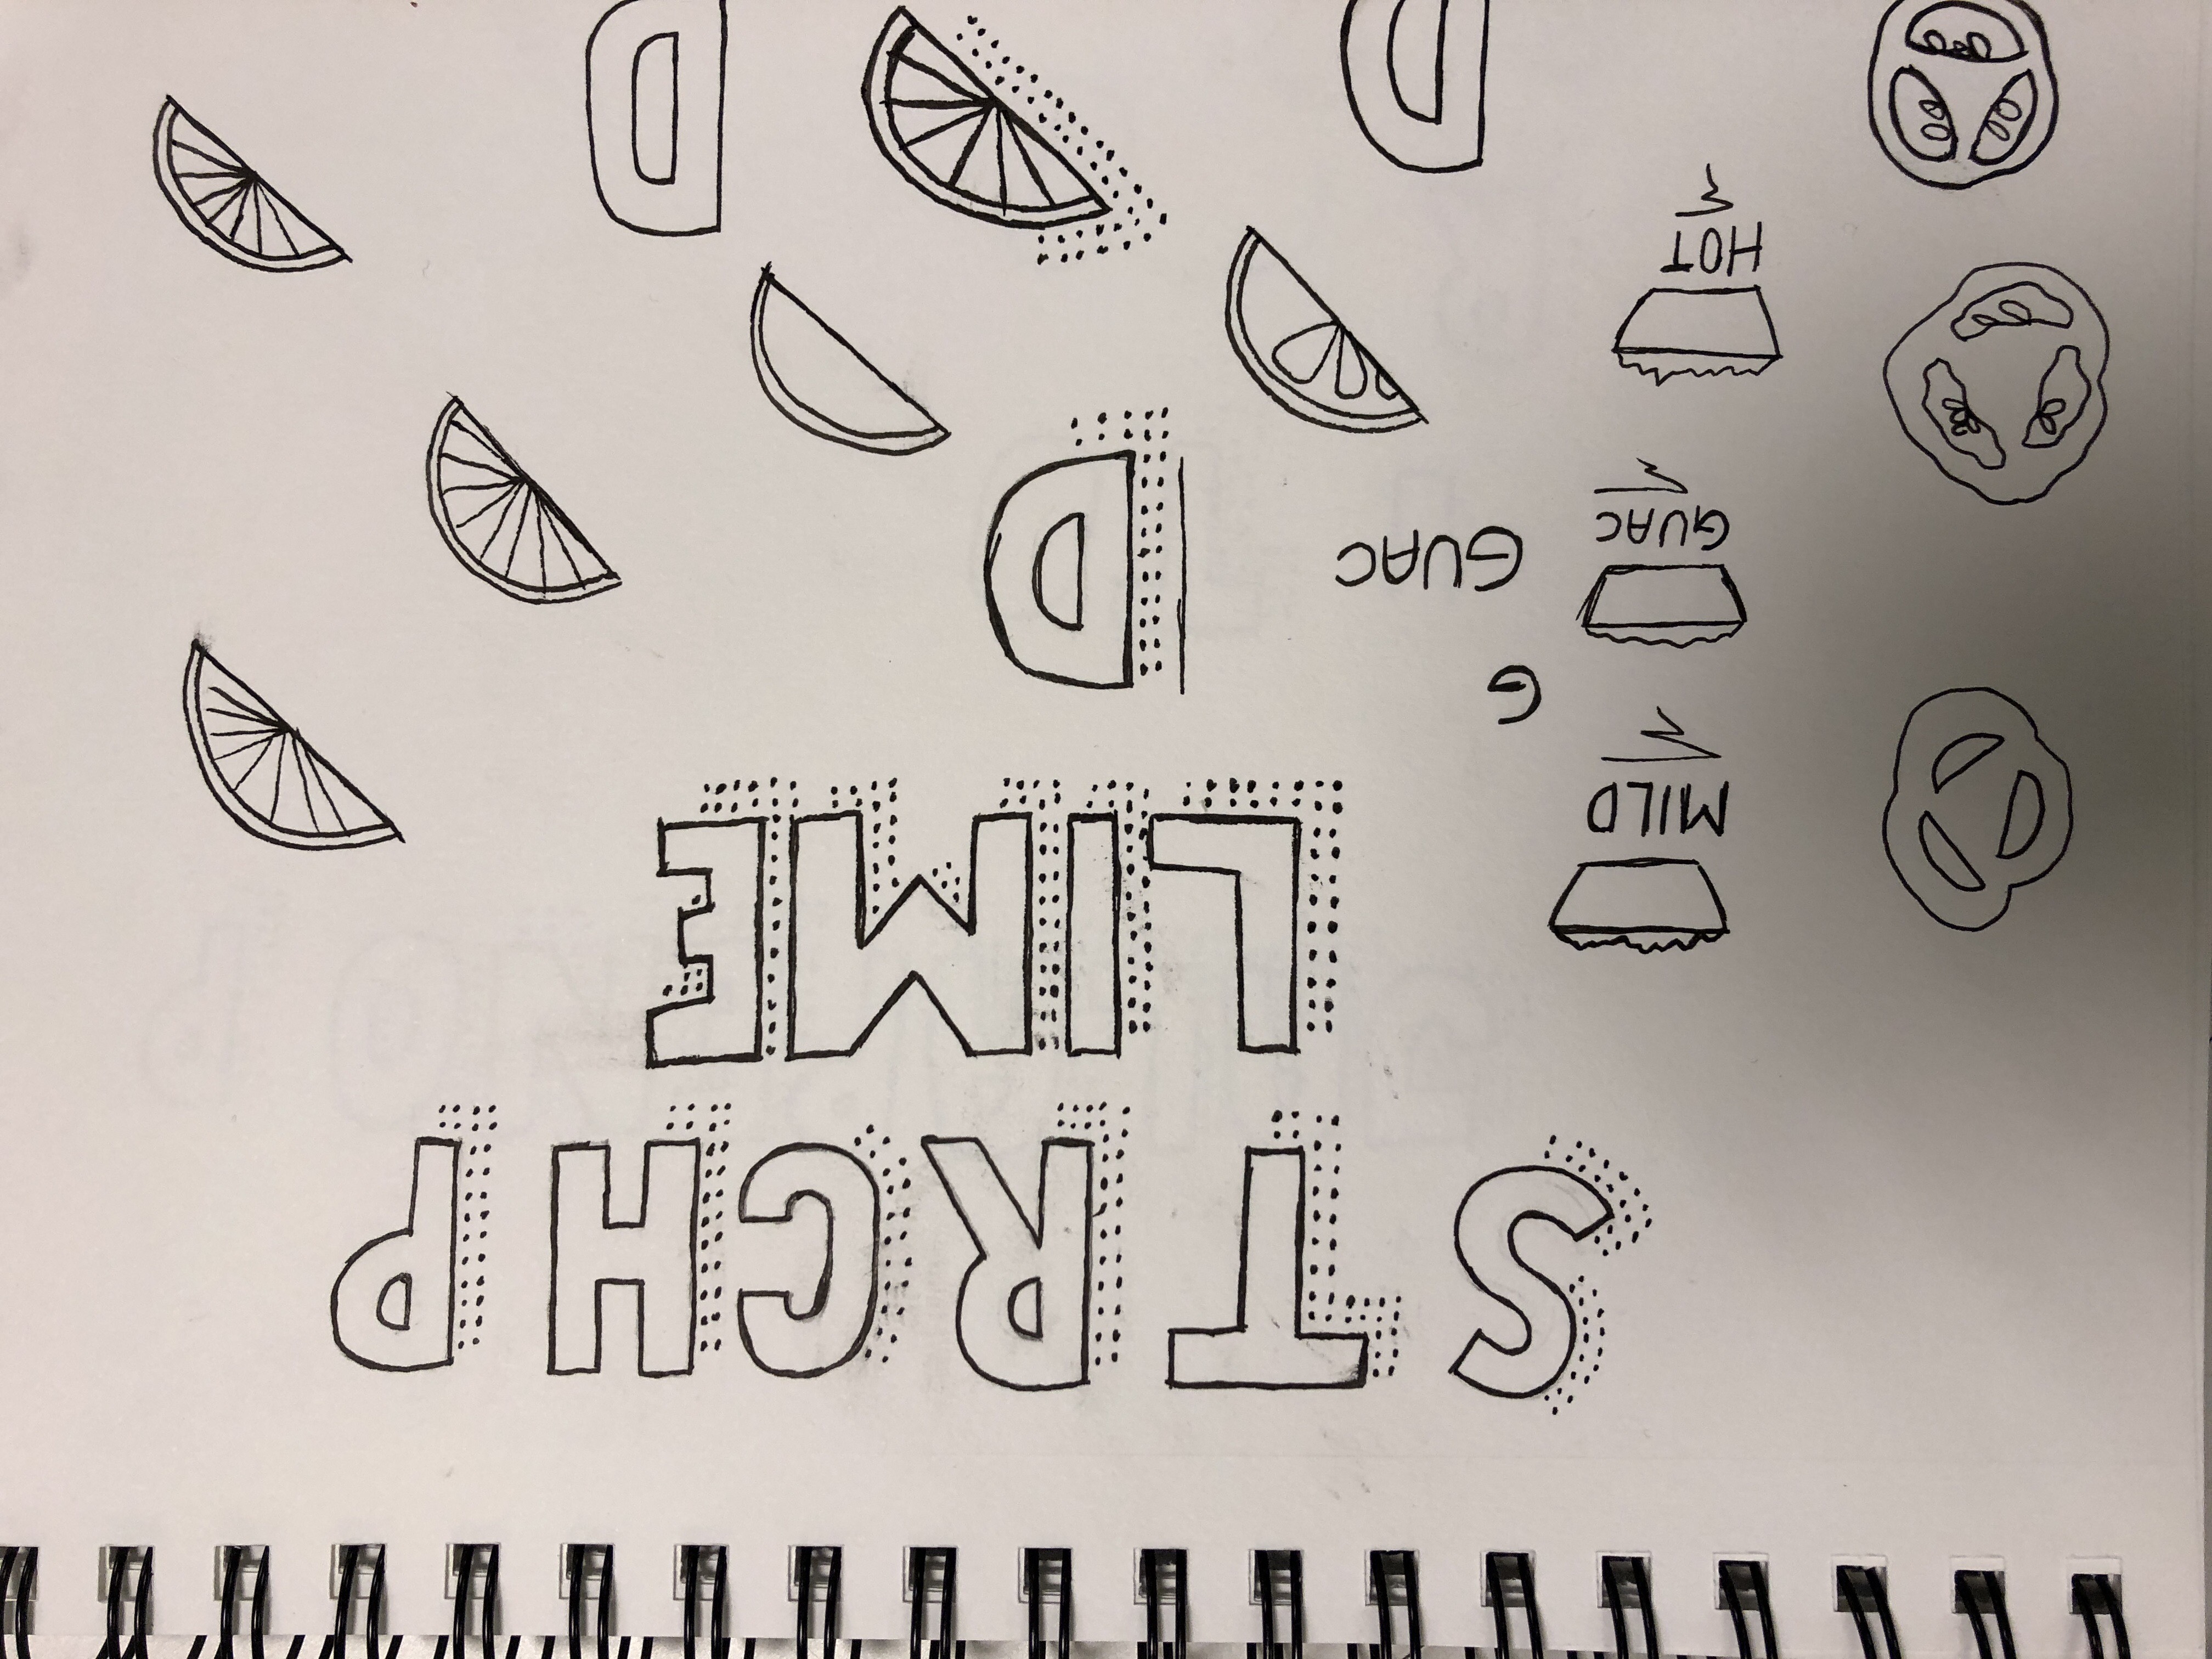 STRCHP
LIME
MILD
G
GUAC
GUAC
D
HOT
D
D